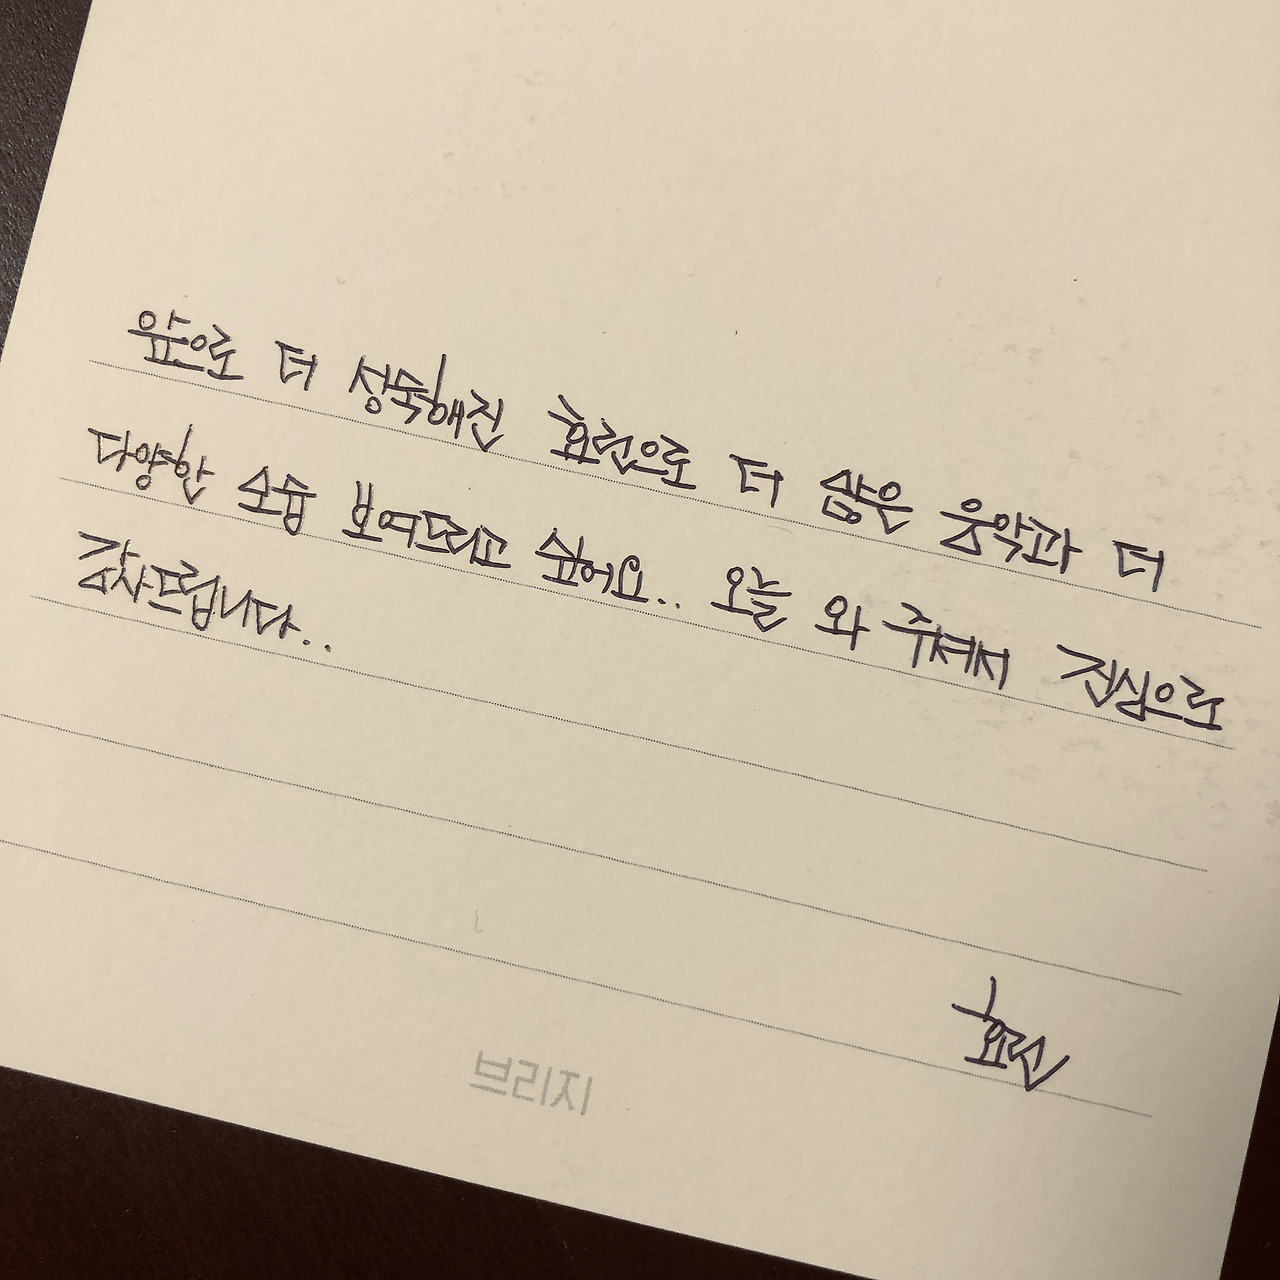 앞으로 더 성숙해진 효린으로 더 많은 음악과 더
다양한 모습 보여드리고 싶어요.. 오늘 와 주셔서 진심으로
감사드립니다..
효린
브리지